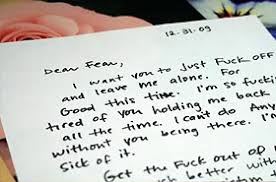 12-31-09
Dear Fear,
I want you to just FUCK OFF
and leave me alone. For
Good this time. I'm so fucking
tired of you holding me back
all the time. I can't do
without you being there. I'm
sick of it.
Get the Fuck out of
better